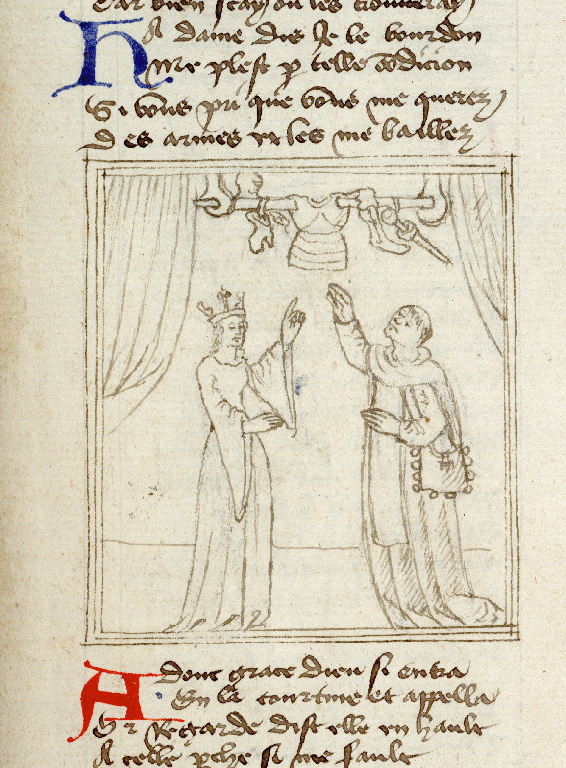 Car bien scay ou les trouueray
HA dame dis Je le bourdon
Me plest p telle 9dicion
Si vous pri que vous me querez
Des armes et les me baillez
Adonc grace dieu si entra
En la courtine et appella
Or regarde dist elle en hault
A celle pche si me fault